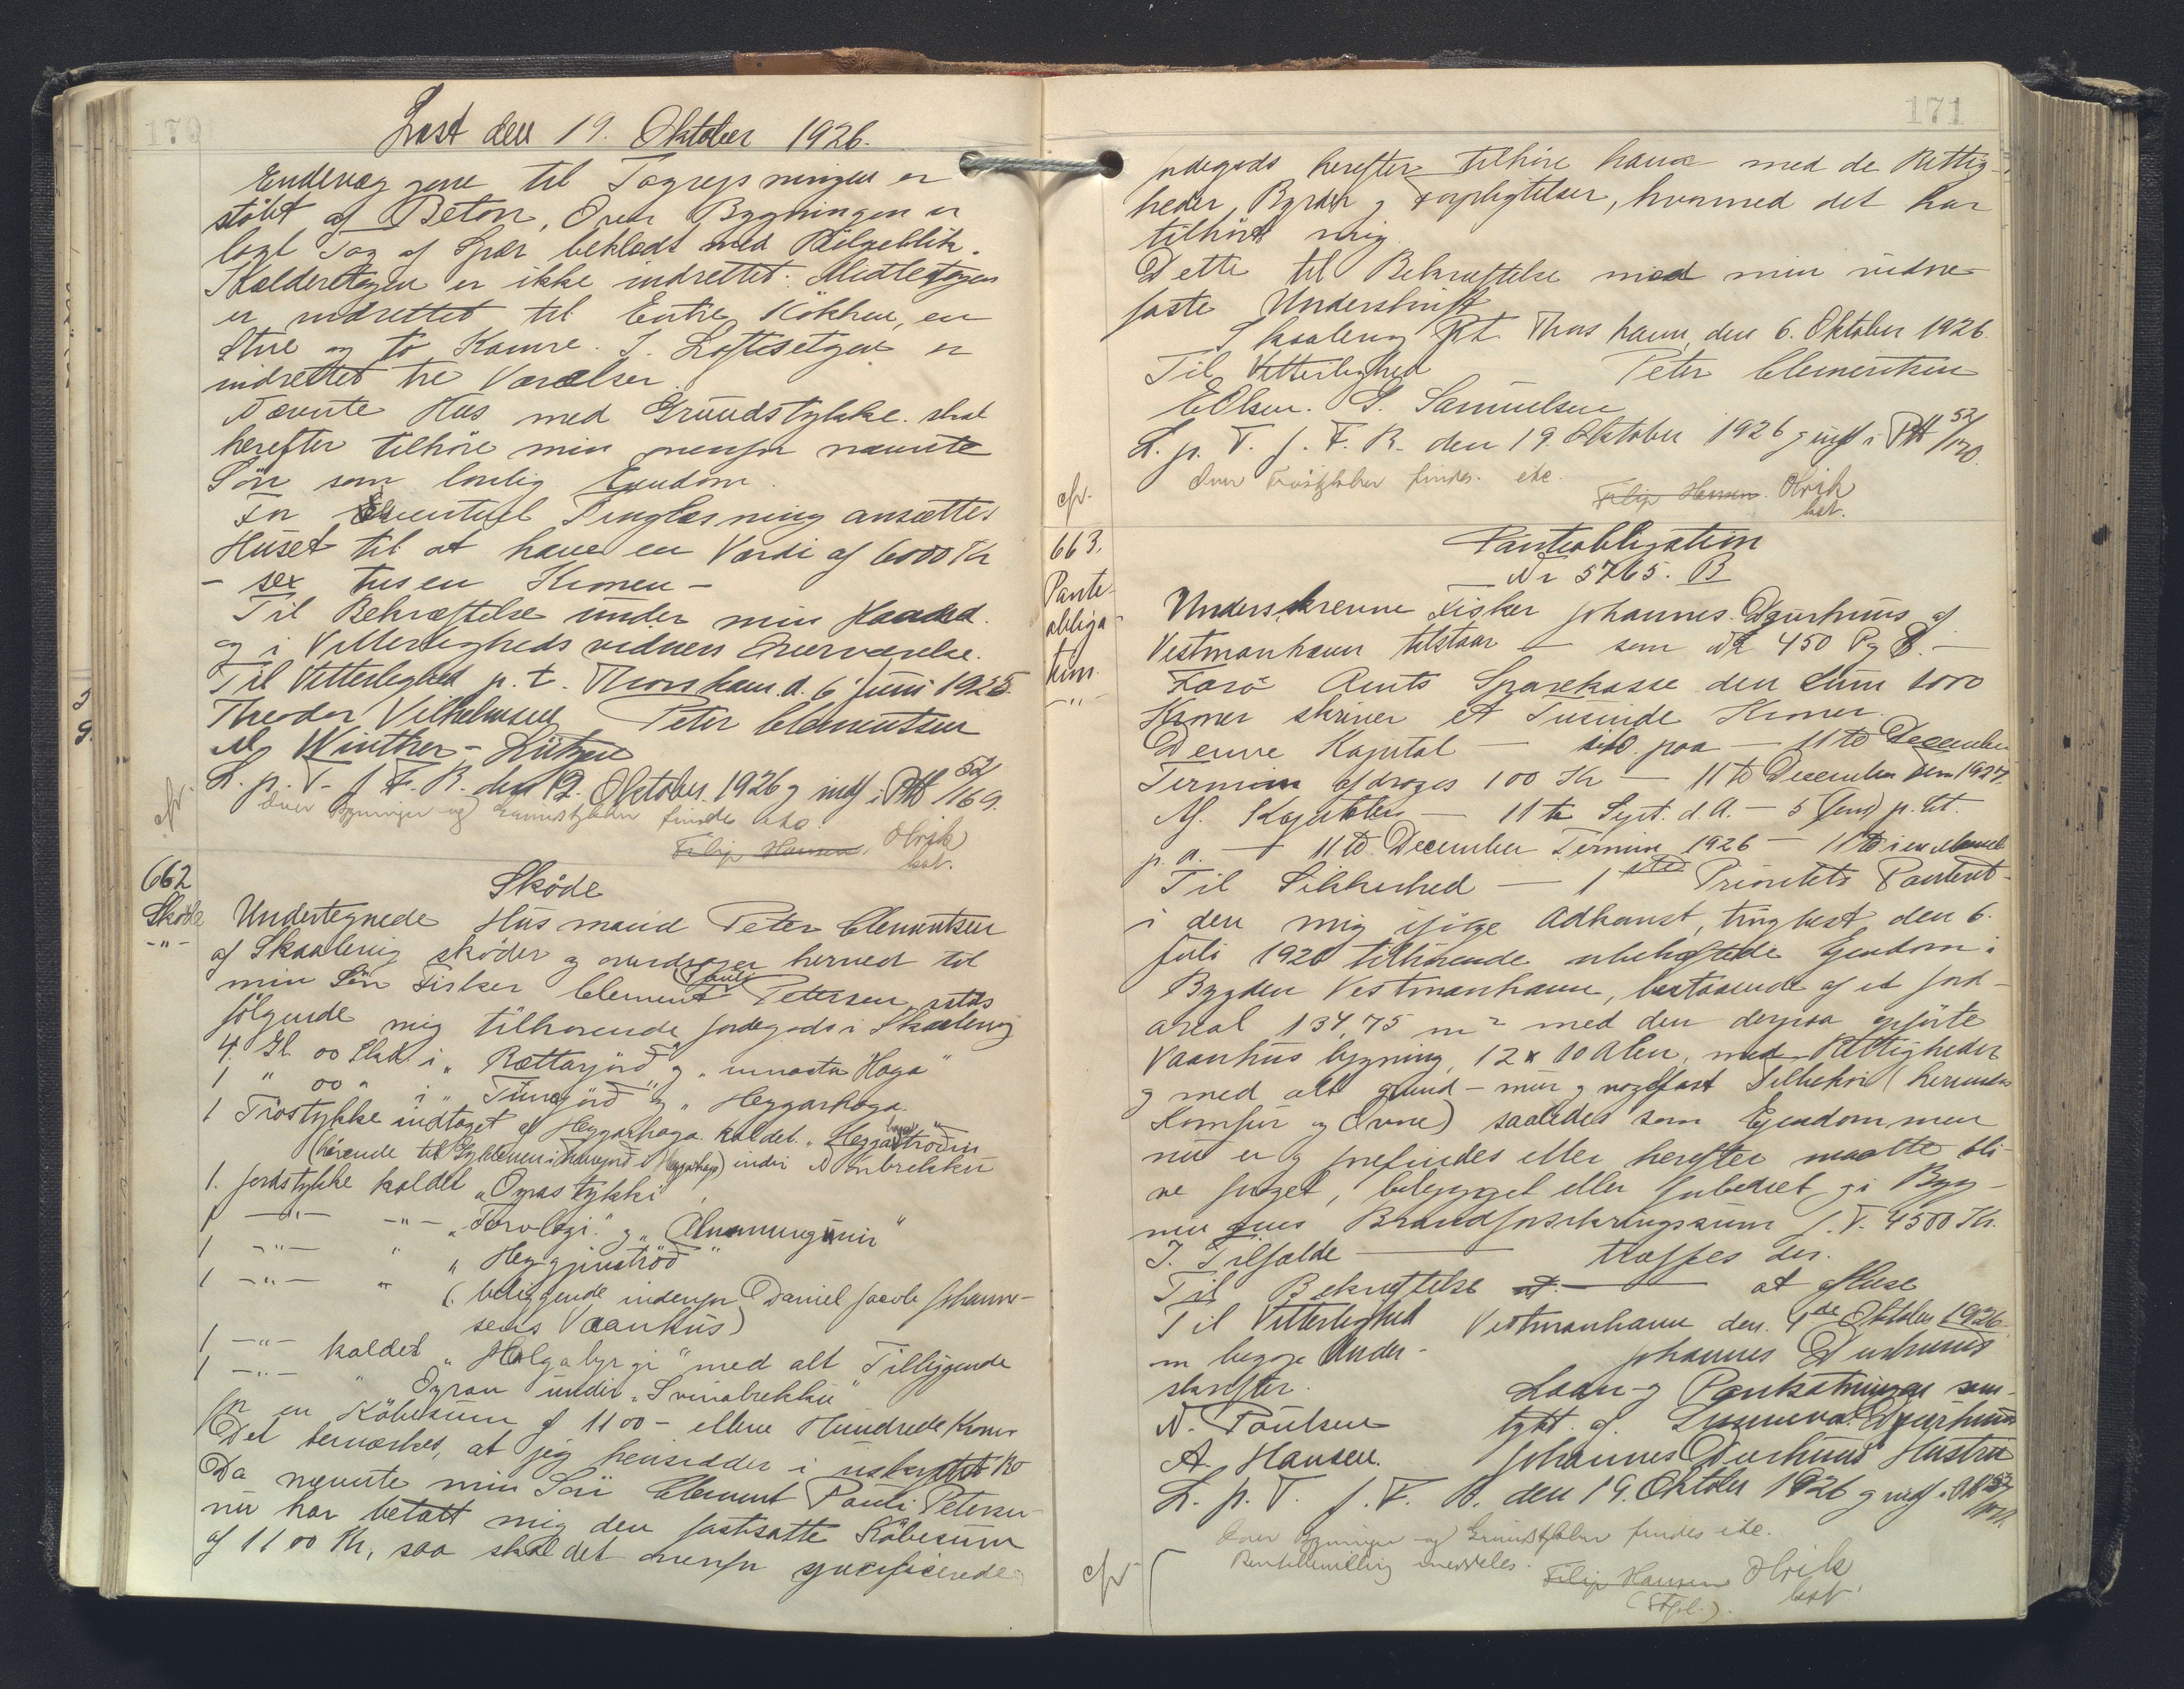 170
Læst den 19. Oktober 1926.
Endevæggene til Tagrejsningen er
støbt af Beton, Over Bygningen er
lagt Tag af Spær beklædt med Bölgeblik.
Kælderetagen er ikke indrettet. Midtetagen
er indrettet til Entre, Kökken, en
Stue og to Kamre. I Loftsetagen er
indrettet tre Værelser.
Nævnte Hus med Grundstykke skal
herefter tilhöre min ovenfor nævnte
Sön som lovlig Ejendom.
For Eventuel Tinglæsning ansættes
Huset til at have en Værdi af 6000 Kr
- sex tusen Kroner -
Til Bekræftelse under min Haand
og i Vitterligheds vidners Overværelse.
Til Vitterlighed p. t. Thorshavn d. 6 Juni 1925.
Theodor Vilhelmsen Peter Clementsen
M. Winther-Lützen
L. p. T. f. F. R. den 19. Oktober 1926 og indf i PH 52/169.
cfr. Over Bygninger og Grundstykker findes ikke.
Filip Hansen. Olrik
kst.
662 Sköde
Sköde Undertegnede Husmand Peter Clementsen
-"- af Skaalevig sköder og overdrager herved til
min Sön Fisker Clement Pauli Petersen sstds
fölgende mig tilhørende Jordegods i Skaalevig
4. Gl. 00 Sk. i "Rættarjörð" og "innasta Haga"
1 " 00 " i "Túnsjörð" og "Heggarhaga
1 Tröstykke indtaget af Heggarhaga kaldet "Heggahagatrøðin
(hörende til Gyldenen i Túnsjörð og Heggarhaga) indri Nonbrekku
1. Jordstykke kaldet "Oyrastykki
1 -"- -"- "Torvlegi" og "
1 -"- " "Heggjinströð"
1 -"- " (beliggende indenfor Daniel Jacob Johanne-
sens Vaanhus)
1 -"- kaldet "Hólgabyrgi" med alt Tilliggende
1 -"- " Oyran undir "Svinabrekku"
for en Köbesum af 1100 - elleve Hundrede Kroner
Det bemærkes, at jeg hensidder i uskiftet Bo
Da nævnte min Sön Clement Pauli Petersen
nu har betalt mig den fastsatte Köbesum
af 1100 Kr, saa skal det ovenfor specificerede
171
Jordegods herefter tilhöre ham med de Rettig-
heder, Byrder og Forpligtelser, hvormed det har
tilhört mig.
Dette til Bekræftelse med min vidne-
faste Underskrift
Skaalevig p.t. Thorshavn, den 6. Oktober 1926.
Til Vitterlighed Peter Clementsen
E Olsen. S. Samuelsen
L. p. T. f. F. R. den 19. Oktober 1926 og indf i PH 52/170.
cfr. Over findes ikke.
Filip Hansen. Olrik
kst.
663. Panteobligation
Pante- Nr 5765. B
obliga- Underskrevne Fisker Johannes Dyurhuus af
tion. Vestmanhavn tilstaar - som Nr 450 Pg 8. -
-"- Færö Amts Sparekasse den Sum 1000
Kroner skriver et Tusinde Kroner.
Denne Kapital - paa - 11te December
Termin afdrages 100 Kr - 11te December Term 1927.
Af Kapitalen - 11te Sept. d. A. - 5 (fem) p. Ct.
p. a. - 11te December Termin 1926 - 11te
Til Sikkerhed - 1ste Prioritets Panteret
i den mig ifölge Adkomst, tinglæst den 6.
Juli 1926 tilhörende ubehæftede Ejendom i
Bygden Vestmanhavn, bestaaende af et Jord-
areal 134,75 m² med den derpaa opförte
Vaanhusbygning, 12 x 10 Alen, med Rettigheder
og med alt grund - mur og nagelfast Tilbehör (herunder
Komfur og Ovne) saaledes som Ejendommen
nu er og forefindes eller herefter maatte bli-
ve foröget, bebygget eller forbedret, og i Byg-
ningens Brandforsikringssum f. T. 4500 Kr.
I Tilfælde - træffes der.
Til Bekræftelse - at aflæse
Til Vitterlighed Vestmanhavn den. 4de Oktober 1926.
om begge Under- Johannes Dyurhuus
skrifter. Laan og Pantsætningen sam-
N. Poulsen tykt af Sunneva Dyurhuus
A. Hansen. Johannes Dyurhuus' Hustru
L. p. T. f. F. R. den 19. Oktober 1926 og indf i PH 52/
Over Bygninger og Grundstykker findes ikke.
cfr. Rentebevilling meddeles.
Filip Hansen Olrik
(Stpl.). kst.